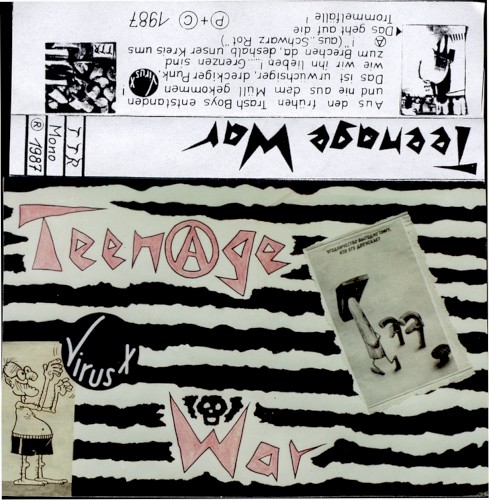 Aus den frühen Trash Boys entstanden
und nie aus dem Müll gekommen!
Das ist urwüchsiger, dreckiger Punk,
wie wir ihn lieben!.....Grenzen sind
zum Brechen da, deshalb unser Kreis ums
Ⓐ! (aus „Schwarz Rot")
Das geht auf die
Trommelfälle!
Ⓟ+Ⓒ 1987
Virus
TTR
Teenage War
TTR
Mono
Ⓡ 1987
TeenⒶge
Virus X
War